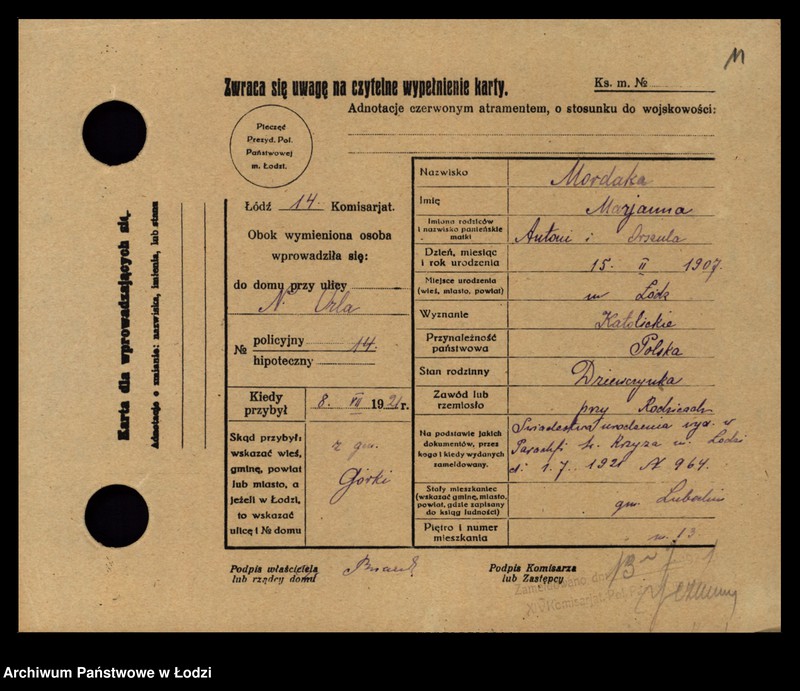 11
Zwraca się uwagę na czytelne wypełnienie karty.
Ks. m. №
Adnotacje czerwonym atramentem, o stosunku do wojskowości:
Pieczęć
Prezyd. Pol.
Państwowej
m. Łodzi.
Łódź 14. Komisarjat.
Obok wymieniona osoba
wprowadziła się:
do domu przy ulicy
N. Orla
№ policyjny 14.
hipoteczny
Kiedy przybył 8. VII 1921 r.
Skąd przybył:
wskazać wieś,
gminę, powiat
lub miasto, a
jeżeli w Łodzi,
to wskazać
ulicę i № domu
z gm.
Górki
Nazwisko Mordaka
Imię Marjanna
Imiona rodziców
i nazwisko panieńskie
matki
Antoni i Orszula
Dzień, miesiąc
i rok urodzenia
15. II 1907.
Miejsce urodzenia
(wieś, miasto, powiat)
w Łódz
Wyznanie Katolickie
Przynależność
państwowa
Polska
Stan rodzinny Dziewczynka
Zawód lub
rzemiosło
przy Rodzicach
Na podstawie jakich
dokumentów, przez
kogo i kiedy wydanych
zameldowany.
Świadectwa urodzenia wyd. w
Parachfi św. Krzyza m. Łodzi
d. 1.7. 1921 № 964.
Stały mieszkaniec
(wskazać gminę, miasto,
powiat, gdzie zapisany
do ksiąg ludności)
gm.
Piętro i numer
mieszkania
m. 13
Podpis właściciela
lub rządcy domu
Podpis Komisarza
lub Zastępcy
Zameldowano dn.
XIV Komisarjat Pol. Pa
Karta dla wprowadzających się.
Adnotacje o zmianie: nazwiska, imienia, lub stanu
Archiwum Państwowe w Łodzi